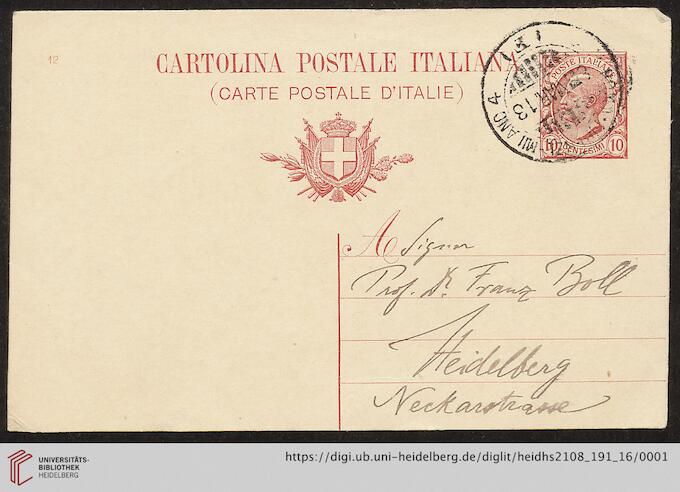 12
CARTOLINA POSTALE ITALIANA
(CARTE POSTALE D'ITALIE)
POSTE ITALIANE
10 CENTESIMI 10
MILANO 4
13
A Signor
Prof. Dr. Franz Boll
Heidelberg
Neckarstrasse
UNIVERSITÄTS-
BIBLIOTHEK
HEIDELBERG
https://digi.ub.uni-heidelberg.de/diglit/heidhs2108_191_16/0001